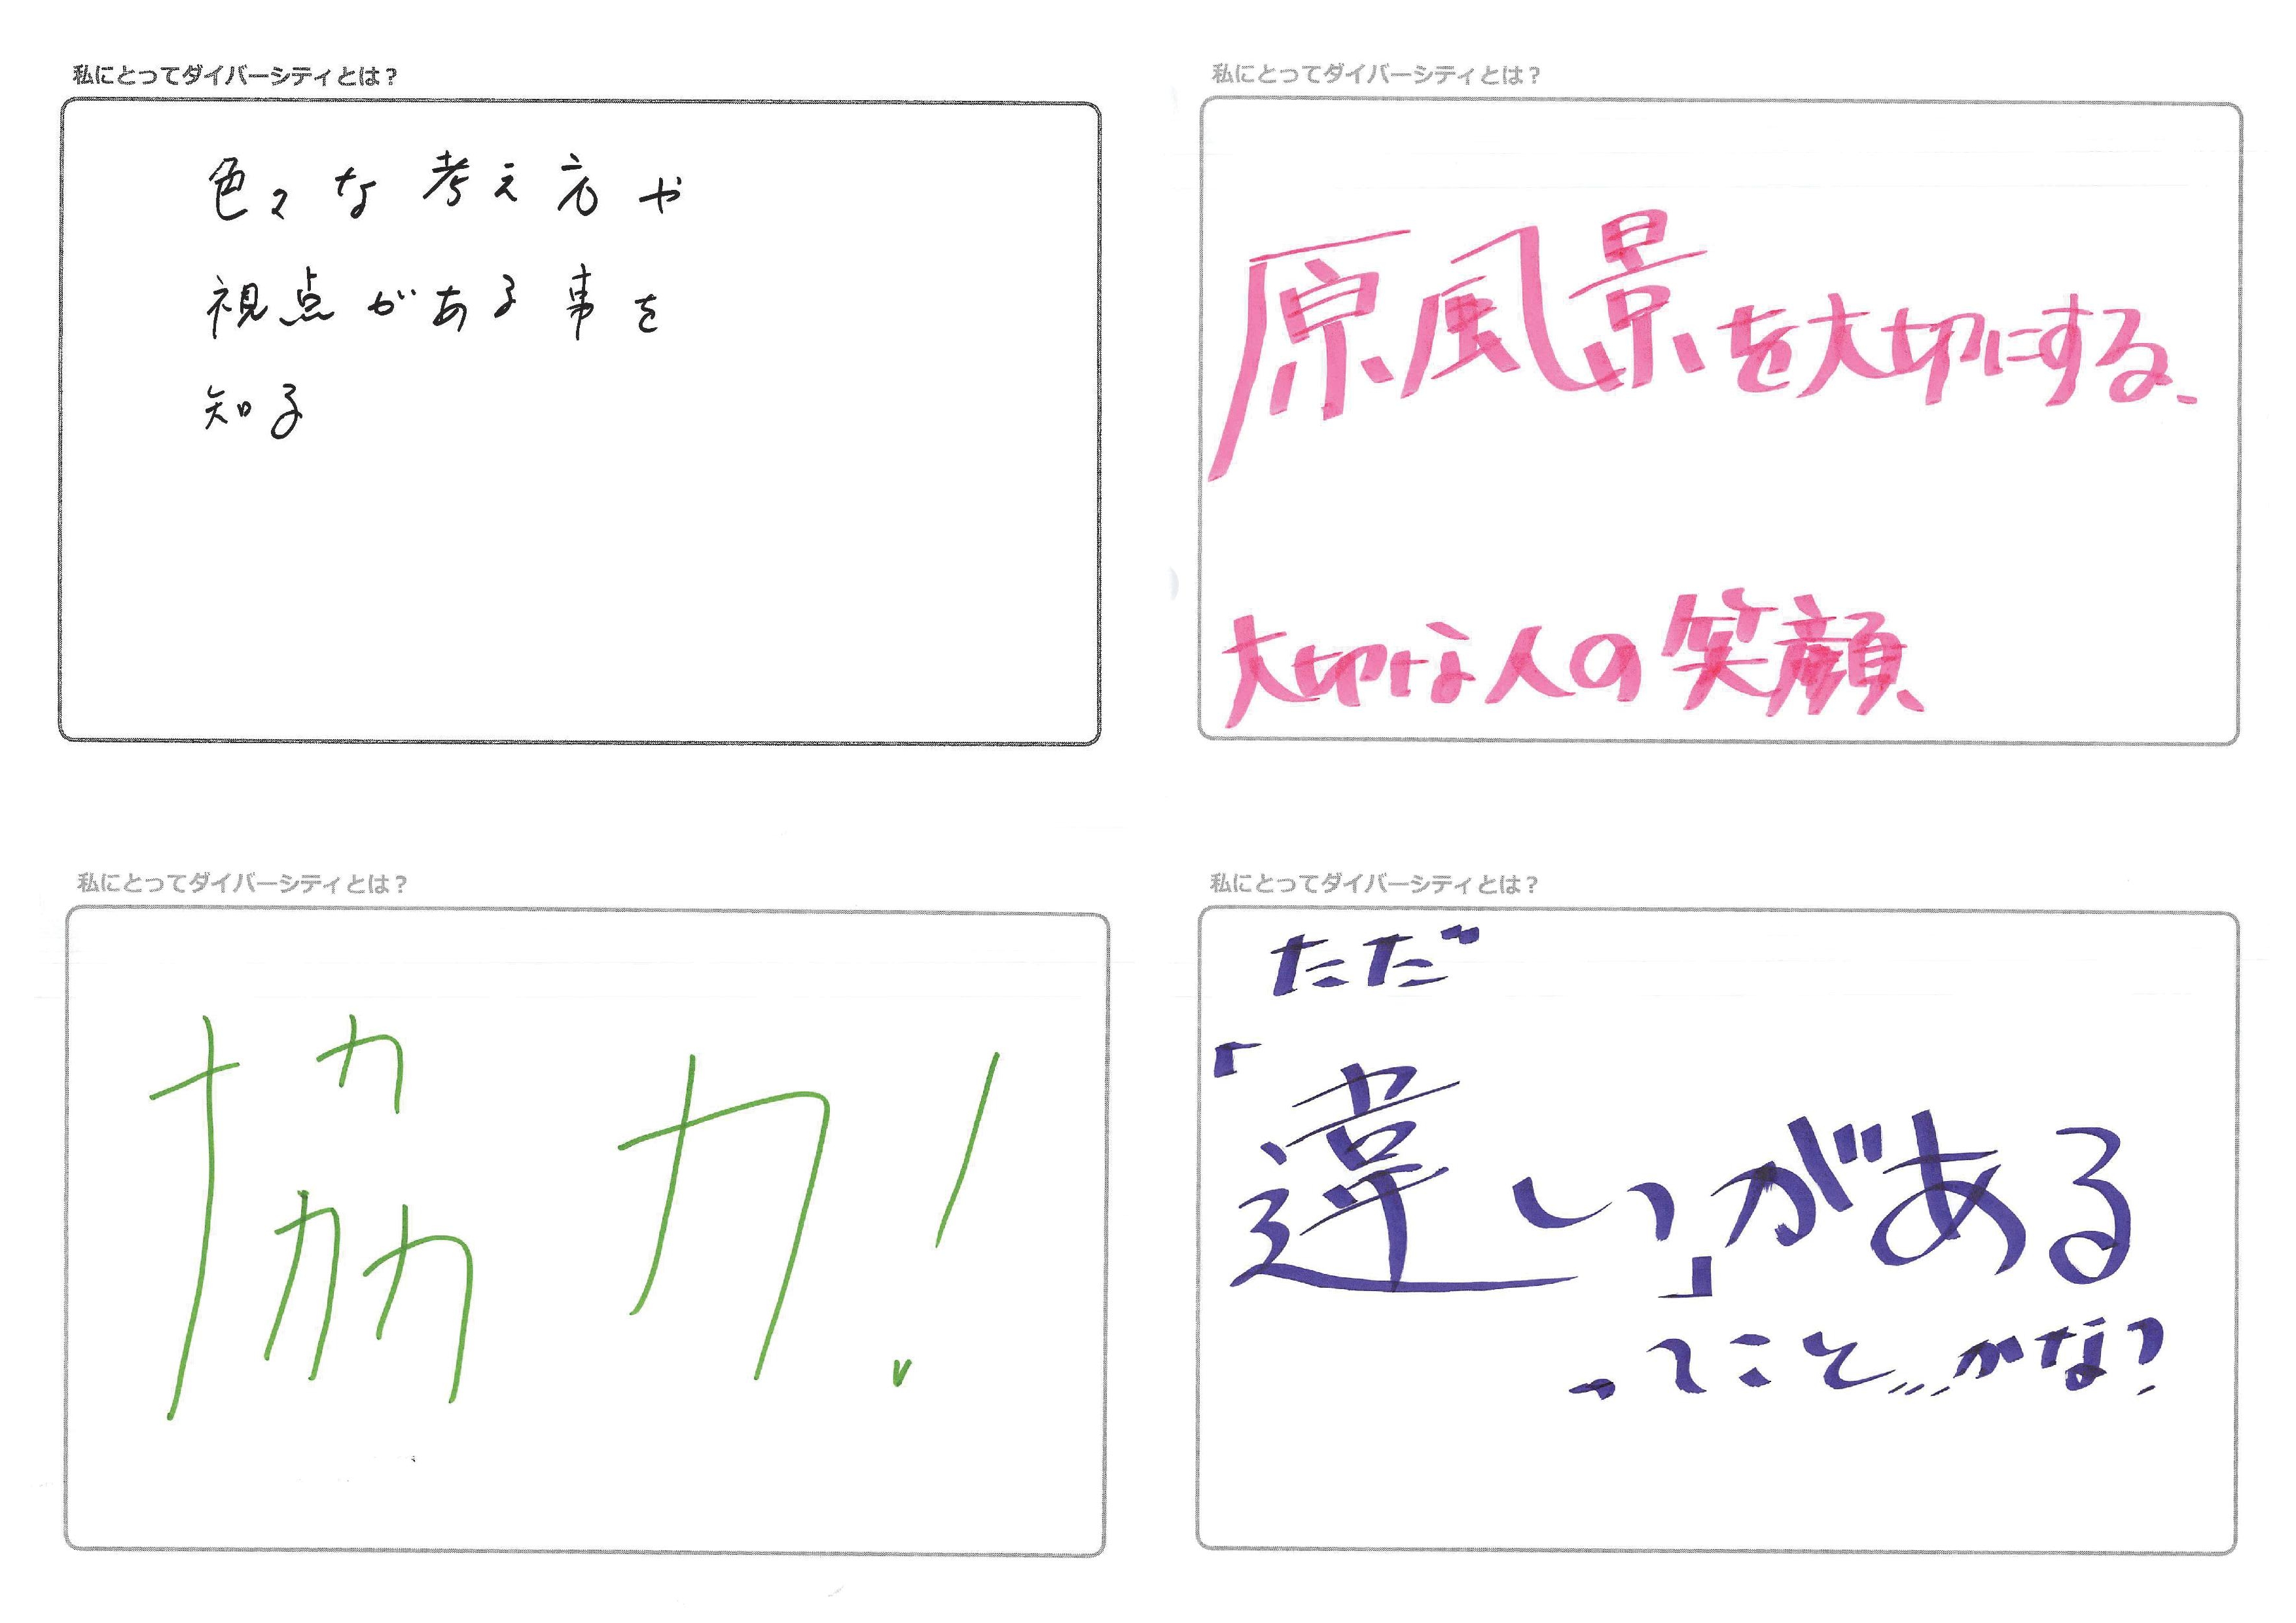 私にとってダイバーシティとは？
色々な考え方や
視点がある事を
知る
私にとってダイバーシティとは？
原風景を大切にする、
大切な人の笑顔
私にとってダイバーシティとは？
協力！
私にとってダイバーシティとは？
ただ
「違い」がある
ってこと…かな？